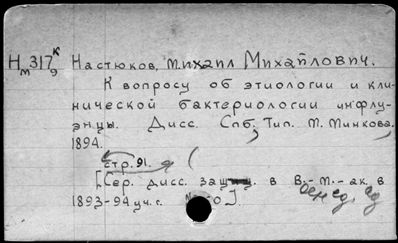 Н м 317 К 9 Настюков, Михаил Михайлович.
К вопросу об этиологии и кли-
нической бактериологии инфлу-
энцы. Дисс. Спб, Тип. М. Минкова,
1894.
стр. 91.
[Сер. дисс. защищ. в В.-М.-ак. в
1893-94 уч. г. №